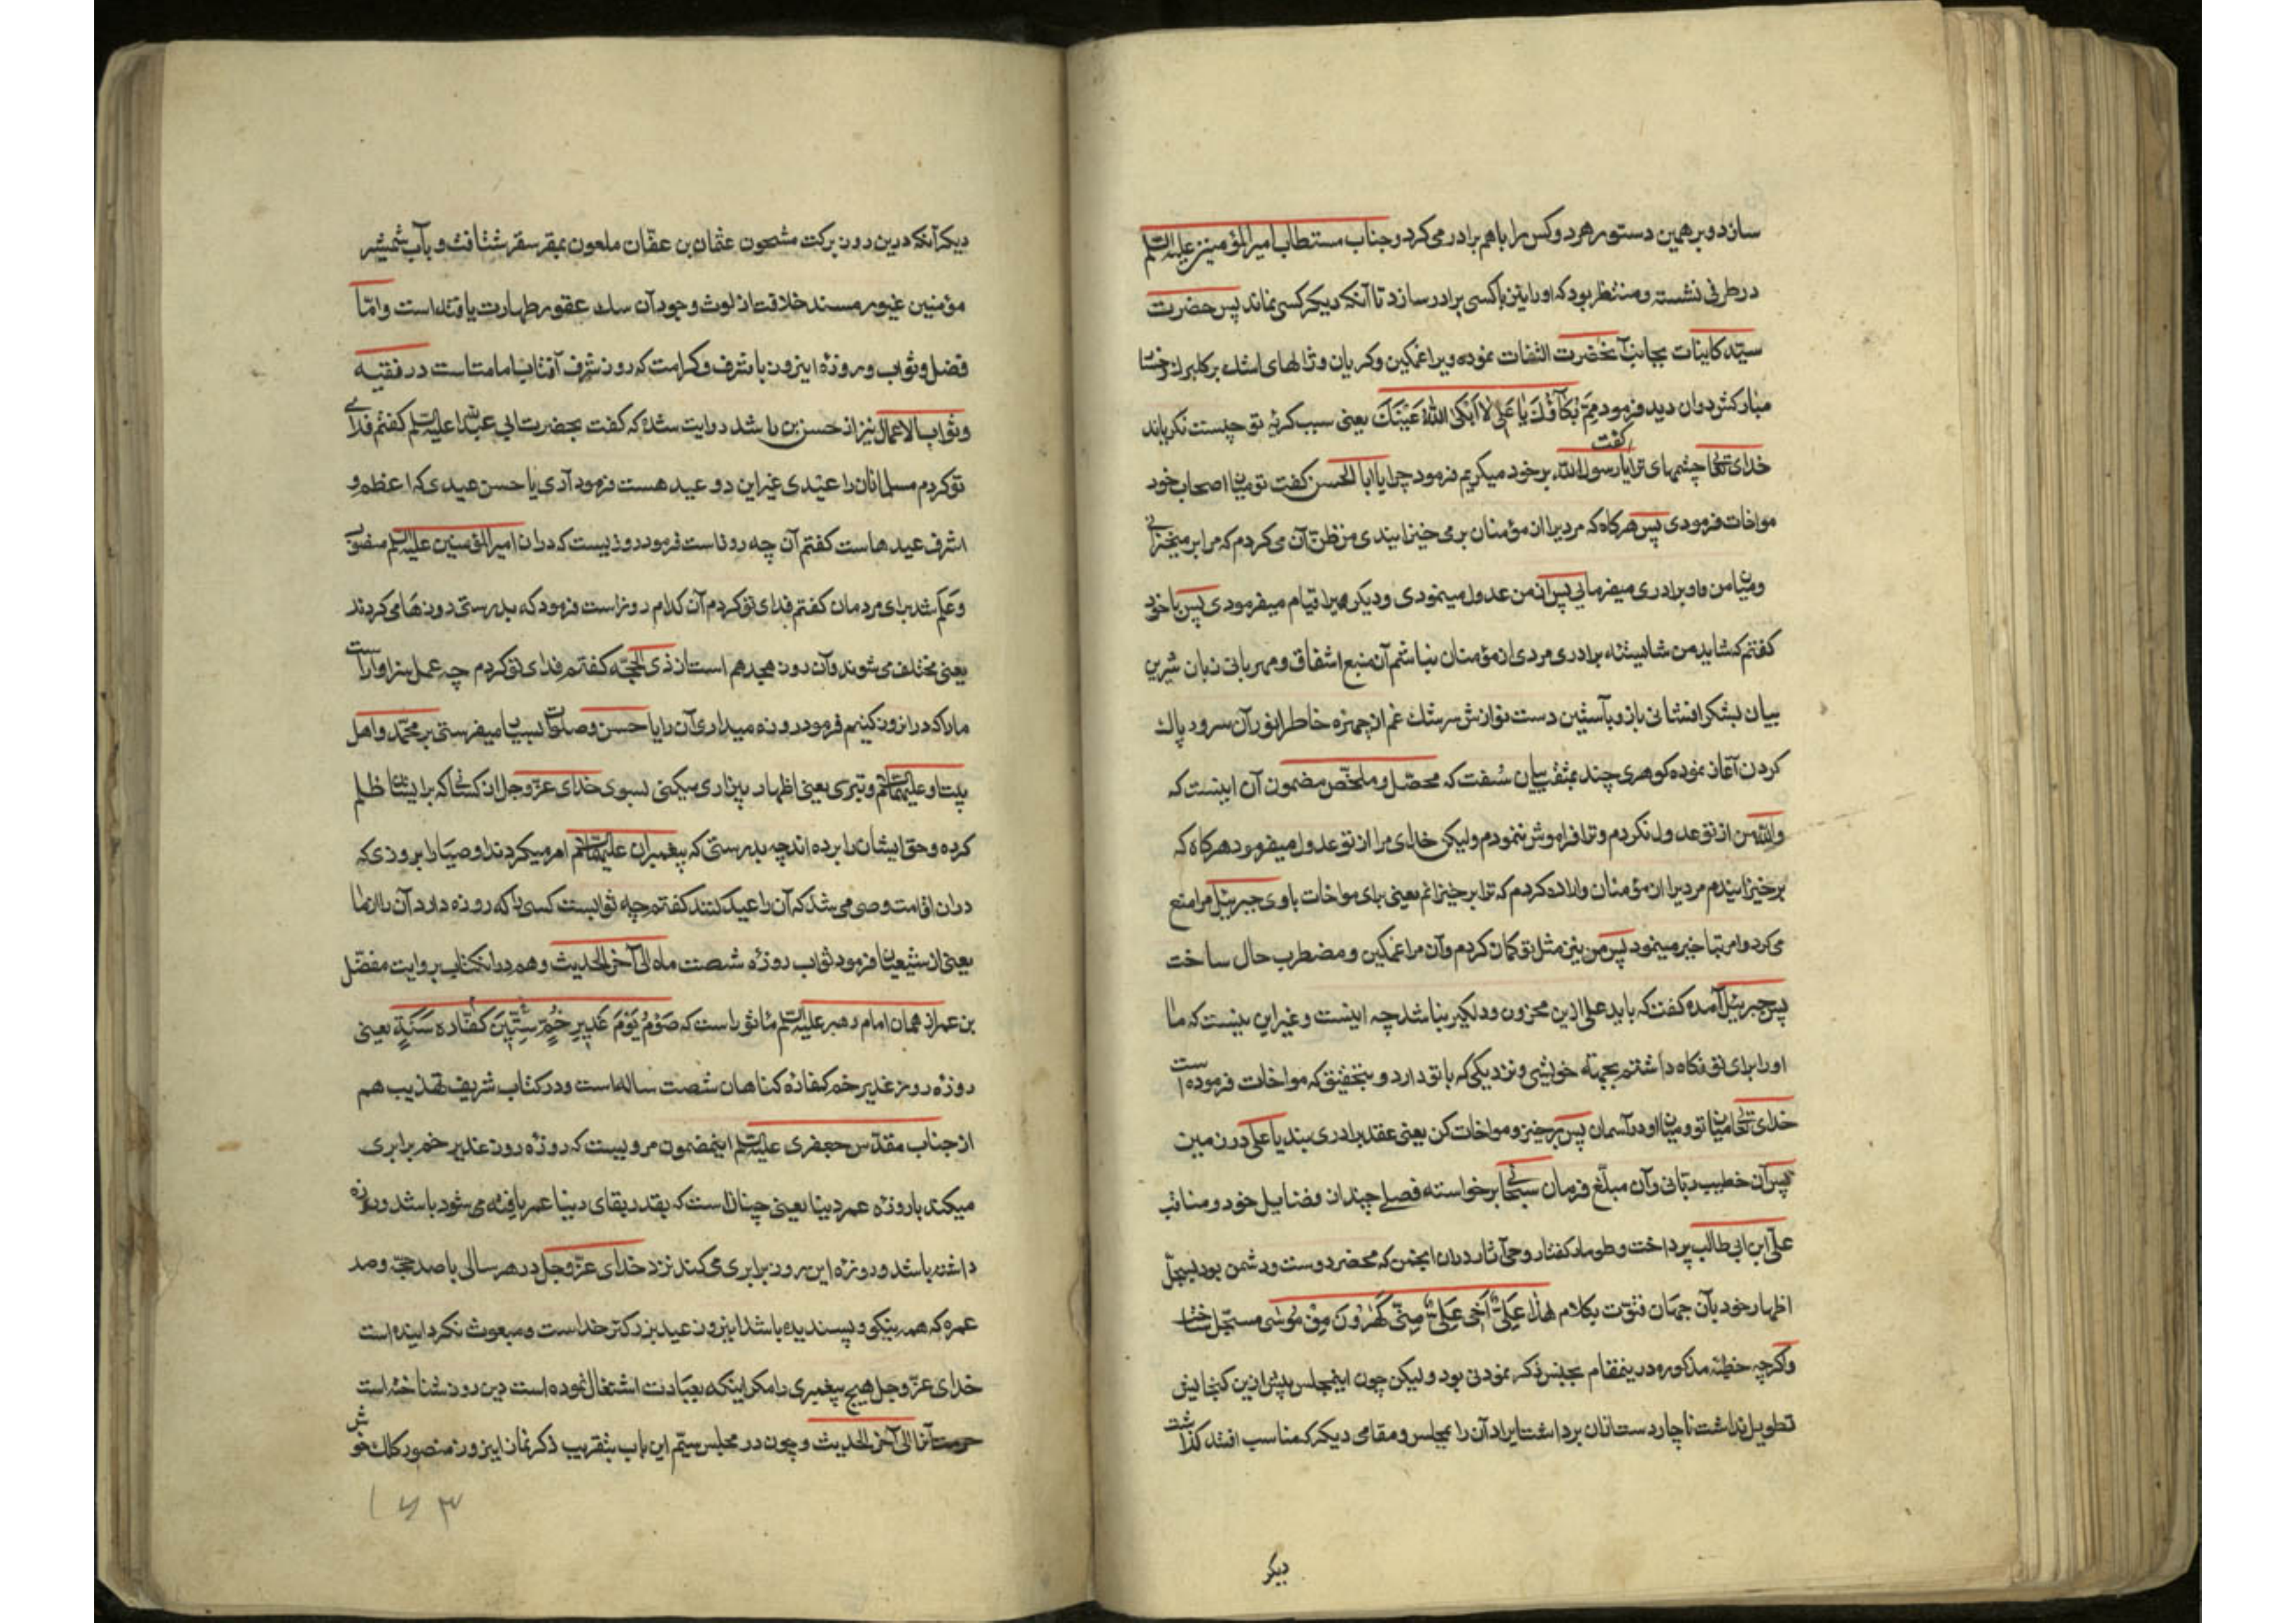 سازد و بر همین دستور هر دو کس را با هم برادر می کرد و جناب مستطاب امیرالمؤمنین علیه السلم
در طرفی نشسته و منتظر بود که او را نیز با کسی برادر سازد تا آنکه دیگر کسی نماند پس حضرت
سید کاینات بجانب آنحضرت التفات نموده ویرا غمکین و کریان و ژالهای اشک بر کلبرک رخسا
مبارکش دوان دید فرمود مِمَّ بُکآؤُكَ یٰا عَلی لٰا اَبْکَی اللّٰهُ عَیْنَكَ یعنی سبب کریهٔ تو چیست نکریاند
خدای تعالی چشمهای ترا گفت یا رسول الله بر خود میکریم فرمود چرا یا ابا الحسن کفت تو میان اصحاب خود
مواخات فرمودی پس هرکاه که مردیرا از مؤمنان برمی خیزانیدی من ظن آن می کردم که مرا برمیخیزانی
و میان من و او برادری میفرمایی پس از من عدول مینمودی و دیگریرا قیام میفرمودی پس با خود
کفتم که شاید من شایستهٔ برادری مردی از مؤمنان نباشم آن منبع اشفاق و مهربانی زبان شیرین
بیان بشکر افشانی باز و بآستین دست نوازش سرشك غم از چهرهٔ خاطر انور آن سرور پاك
کردن آغاز نموده کوهری چند بمثقب بیان سُفت که محصّل و ملخّص مضمون آن اینست که
والله من از تو عدول نکردم و ترا فراموش ننمودم ولیکن خدای مرا از تو عدول میفرمود هرکاه که
برخیزانیدم مردیرا از مؤمنان و اراده کردم که ترا برخیزانم یعنی برای مواخات با وی جبرئیل مرا منع
می کرد و امر بتاخیر مینمود پس من نیز مثل تو کمان کردم و آن مرا غمکین و مضطرب حال ساخت
پس جبرئیل آمده کفت که باید علی ازین محزون و دلکیر نباشد چه اینست و غیر این نیست که ما
او را برای تو نکاه داشتیم بجهة خویشی و نزدیکی که با تو دارد و بتحقیق که مواخات فرموده است
خدای تعالی میان تو و میان او در آسمان پس برخیز و مواخات کن یعنی عقد برادری ببند یا علی در زمین
پس آن خطیب ربّانی و آن مبلّغ فرمان سبحانی برخواسته فصلی چندان فضایل خود و مناقب
علی ابن ابی طالب پرداخت و طومار کفتار وحی آثار در آن انجمن که محضر دوست و دشمن بود بسجلّ
اظهار خود بآن جهان فتوّت بکلام هٰذٰا عَلِیٌّ اَخی عَلِیٌّ مِنّی کَهٰرُونَ مِنْ مُوسٰی مسجّل ساخت
و اکرچه خطبهٔ مذکوره درینمقام بجنس ذکر نمودنی بود ولیکن چون اینمجلس بیش ازین کنجایش
تطویل نداشت ناچار دست ازان برداشت ایراد آن را بمجلس و مقامی دیکر که مناسب افتد کذاشت
دیکر
دیکر آنکه درین روز برکت مشحون عثمان بن عفّان ملعون بمقر سقر شتافت و بآب شمشیر
مؤمنین غیور مسند خلافت از لوث وجود آن سك عقور طهارت یافته است و امّا
فضل و ثواب و روزهٔ اینروز با شرف و کرامت که روز شرف آفتاب امامتست در فقیه
و ثواب الاعمال نیز از حسن بن راشد روایت شده که کفت بحضرت ابی عبد الله علیه السلم کفتم فدای
تو کردم مسلمانان را عیدی غیر این دو عید هست فرمود آری یا حسن عیدی که اعظم و
اشرف عیدهاست کفتم آن چه روز است فرمود روزیست که دران امیر المؤمنین علیه السلم منصوب
و عَلَم شد برای مردمان کفتم فدای تو کردم آن کدام روز است فرمود که بدرستی روزها می کردند
یعنی مختلف می شوند و آن روز هیجدهم است از ذی الحجّه کفتم فدای تو کردم چه عمل سزاوار است
ما را که در انروز کنیم فرمود روزه میداری آن را یا حسن و صلوات بسیار میفرستی بر محمّد و اهل
بیت او علیهم السلم و تبرّی یعنی اظهار بیزاری میکنی بسوی خدای عزّ و جل از کسانی که بر ایشان ظلم
کرده و حق ایشان را برده اند چه بدرستی که پیغمبران علیهم السلم امر میکردند اوصیا را بروزی که
دران اقامت وصی می شد که آن را عید کنند کفتم چه ثوابست کسی را که روزه دارد آن را از ما
یعنی از شیعیان فرمود ثواب روزهٔ شصت ماه الی آخر الحدیث و هم در انکتاب بروایت مفضّل
بن عمر از همان امام رهبر علیه السلم ماثور است که صَوْمُ یَوْمِ غَدیرِ خُمٍّ سِتّینَ کَفّاره سَنَةٍ یعنی
روزهٔ روز غدیر خم کفارهٔ کناهان شصت ساله است و در کتاب شریف تهذیب هم
از جناب مقدّس جعفری علیه السلم اینمضمون مرویست که روزهٔ روز غدیر خم برابری
میکند با روزهٔ عمر دنیا یعنی چنانست که بقدر بقای دنیا عمر یافته می شود باشد و روزه
داشته باشد و روزهٔ این روز برابری می کند نزد خدای عزّ و جل در هر سالی با صد حجّ و صد
عمره که همه نیکو و پسندیده باشد اینروز عید بزرکتر خداست و مبعوث نکردانیده است
خدای عزّ و جل هیچ پیغمبری را مکر اینکه بعبادت اشتغال نموده است درین روز شناخته است
حرمت آن را الی آخر الحدیث و چون در مجلس سیّم این باب بتقریب ذکر نماز اینروز منصور کلك خوش
۱۶۳